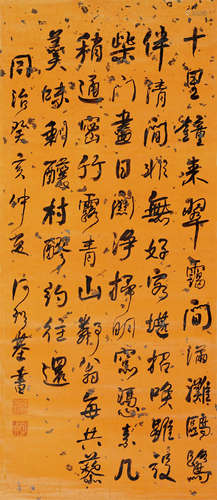 十里鐘來翠靄間滿灘鷗鷺
伴清閒非無好客堪招喚雖設
柴門晝日關淨掃明窗憑素几
稍通密竹露青山鄰翁每共藜
羹味剩釀村醪約往還
同治癸亥仲夏 何紹基書